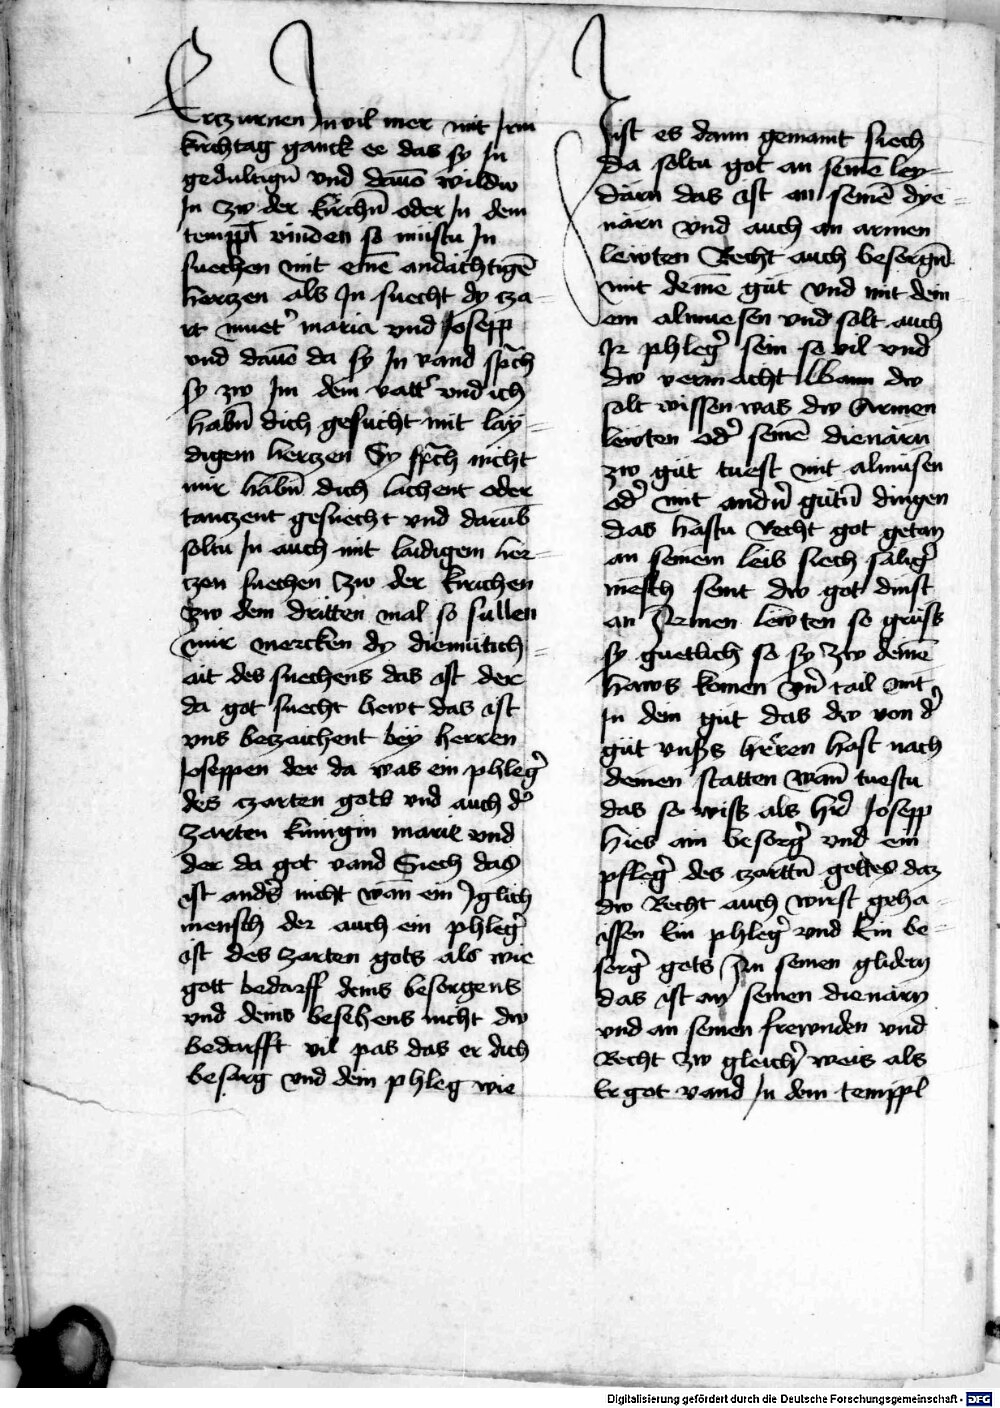 Erczurnen In vil mer mit Irm
kirchtag ganck ee das sy In
gedultigñ vnd dauō wildw
In zw der kirchñ oder In dem
temppl vinden so müstu In
suechen mit emē andächtigē
hertzen als In suecht dy cza-
rt muet᾿ maria vnd Josepp
vnd dauō da sy In vand sprach
sy zw Im dein vatt᾿ vnd ich
habñ dich gesucht mit lay-
digem hertzen Sy sprach nicht
mir habñ dich lachent oder
tanczent gesuecht vnd darūb
soltu In auch mit laidigem her-
czen suechen Zw der kirichen
Zw dem dritten mal so sullen
mir mercken dy diemütich-
ait des suechens das ist der
da got suecht hewt das ist
vns beczaichent bëy herren
Joseppen der da was ein phleg᾿
des czarten gots vnd auch d᾿
zarten künigin marie vnd
der da got vand Suech das
ist and᾿s nicht wañ ein Iglich
mensch der auch ein phleg᾿
ist des zarten gots als wie
gott bedarff deins besorgens
vnd deins besehens nicht dw
bedarfft vil pas das er dich
besarg vnd dein phleg wie
Jist es dann genannt siech
da soltu got an semē ley-
därn das ist an semē dye-
närn vnd auch an armen
lewten Recht auch besorgñ
mit demē güt vnd mit dein
em almuesen vnd solt auch
Ir phleg᾿ sein so vil vnd
dw vermacht Wann dw
salt wissen was dw Armen
lewten od᾿ semē dienärn
zw güt tuest mit almüsen
od᾿ mit and᾿n gütñ dingen
das hastu Recht got getan
an seinem leib siech sälig᾿
mēsch seint dw got dinst
an Armen lewten so grüss
sy guetlich so sy zw demē
haws komen vñ tail mit
In dem güt das dw von d᾿
güt vns᾿s herren hast nach
deinen statten wañ tuestu
das so wiss als hr᾿ Josepp
hies ain besorg᾿ vnd ein
pfleg᾿ des czarttñ gottes daz
dw Recht auch wirst geha-
issen Ein phleg᾿ vnd Ein be-
sorg᾿ gots In seinen glidern
das ist an seinen dienärn
vnd an seinen frewnden vnd
Recht zw gleich᾿ weis als
Er got vand In dem temppl
Digitalisierung gefördert durch die Deutsche Forschungsgemeinschaft - DFG